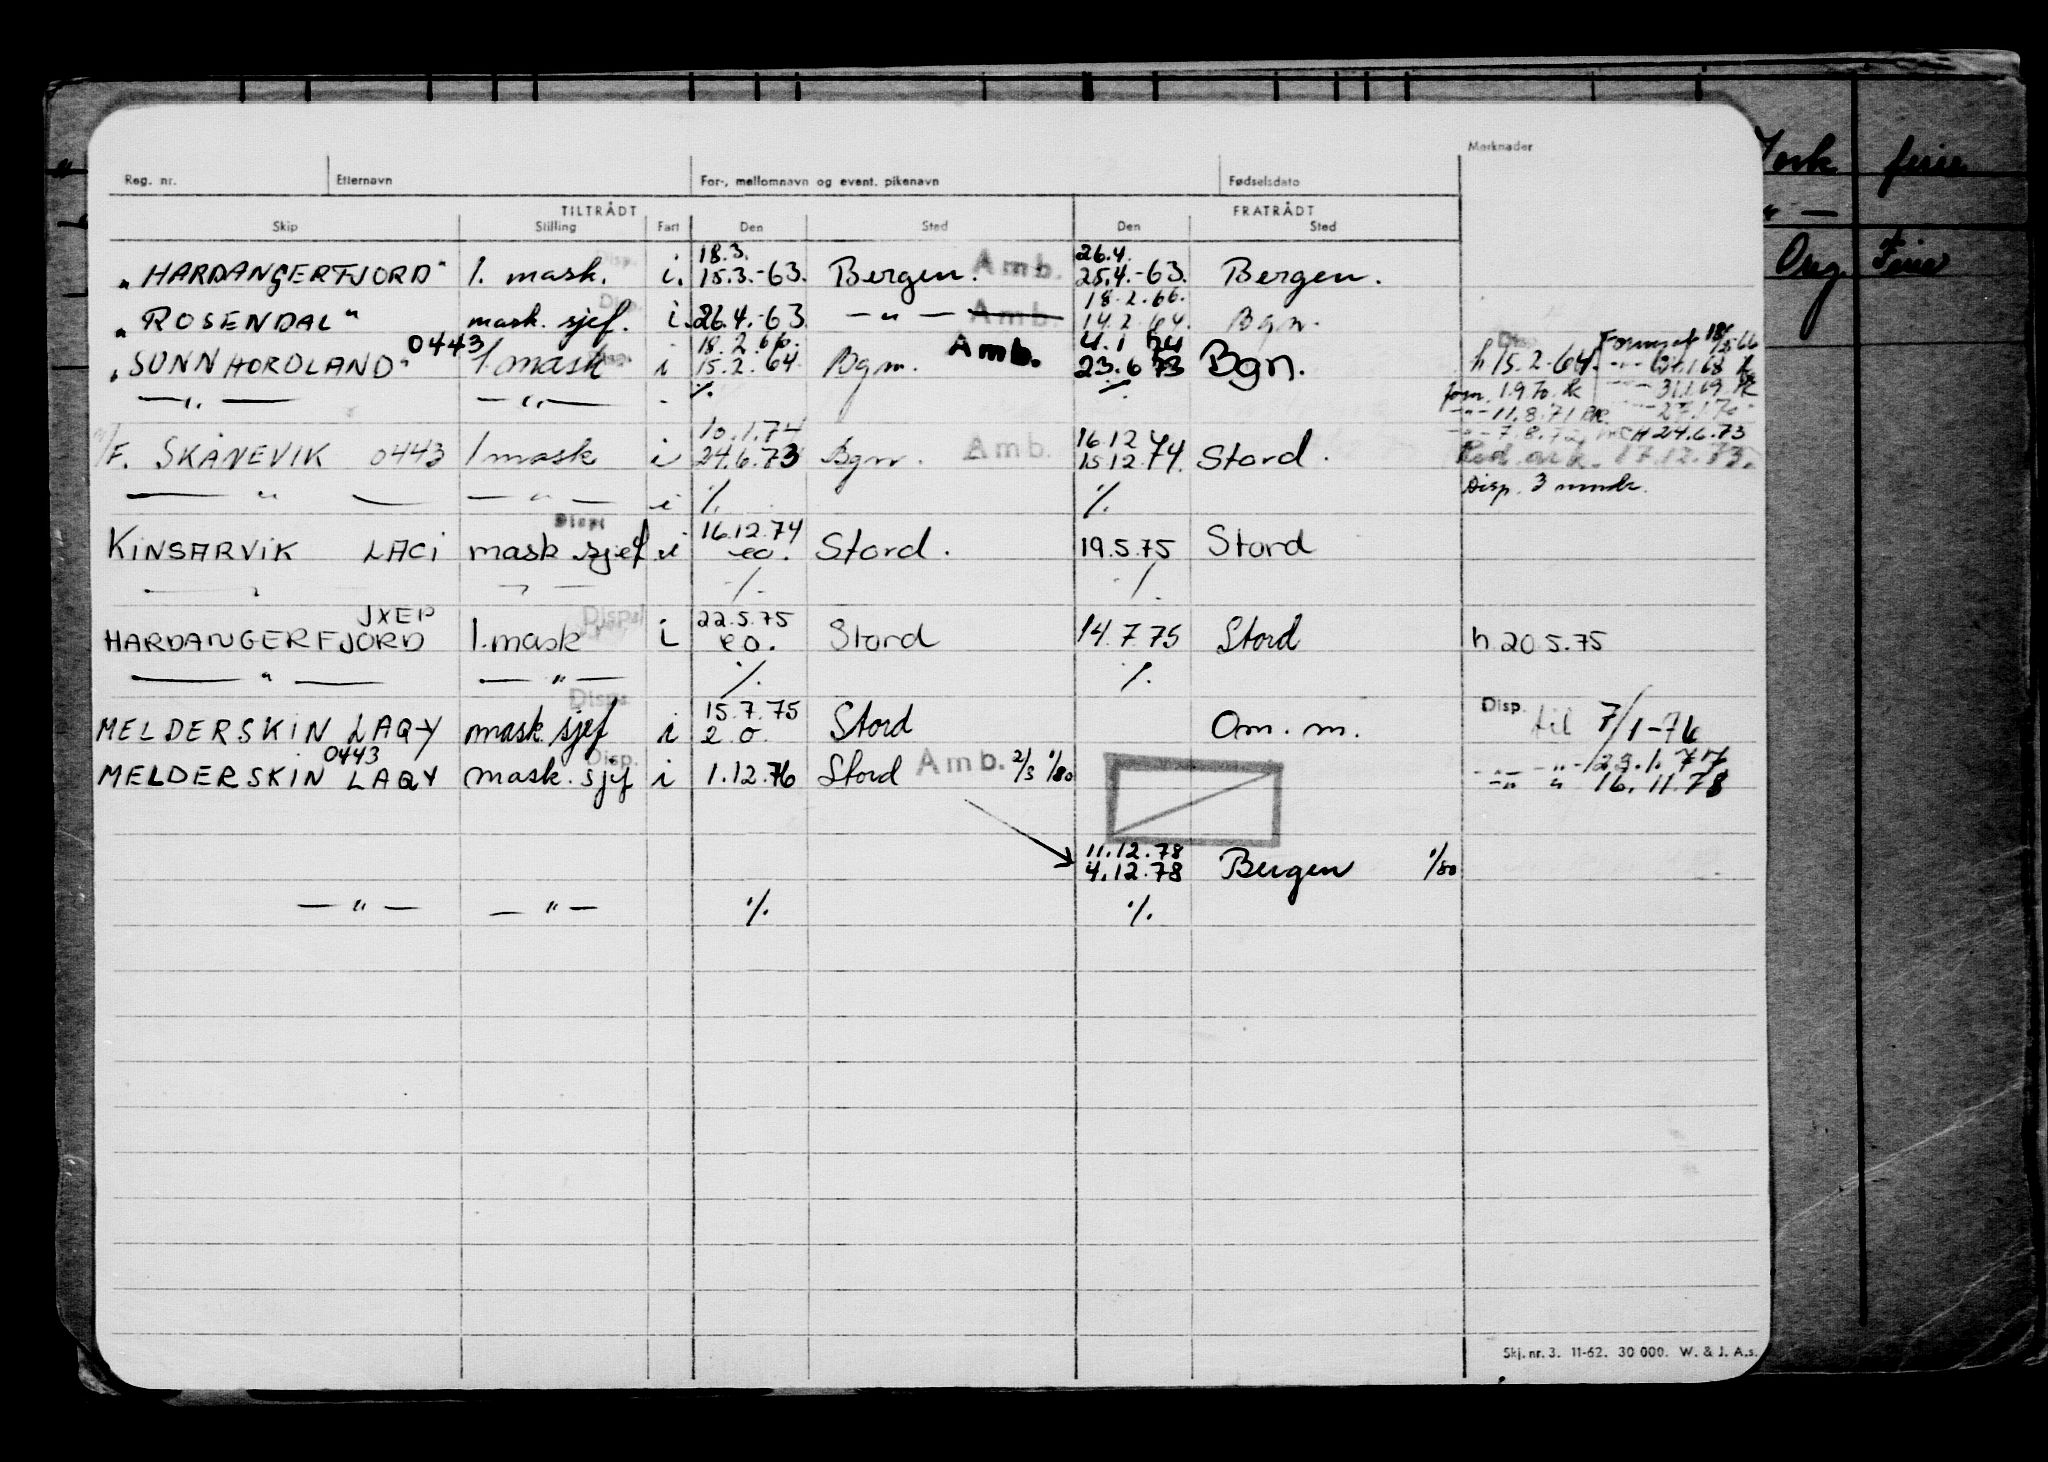 Merknader
Reg. nr. Etternavn For-, mellomnavn og event. pikenavn Fødselsdato
TILTRÅDT FRATRÅDT
Skip Stilling Fart Den Sted Den Sted
18.3. 26.4.
"HARDANGERFJORD" 1. mask. Disp. i. 15.3.-63. Bergen. Amb. 25.4.-63. Bergen.
18.2.66.
"ROSENDAL" mask. sjef. Disp. i. 26.4.-63. — " — Amb. 14.2.64. Bgn.
0443 18.2.66. Amb. 4.1.74 Disp.
"SUNNHORDLAND" 1. mask Disp. i 15.2.64. Bgn. 23.6.73 Bgn. h 15.2-64.
— " — — " — - ·/. ·/. 1.9.70. 31.1.69
11.8.71 27.1.70
10.1.74 16.12.74 7.8.72 24.6.73
M/F. SKÅNEVIK 0443 1 mask i 24.6.73 Bgn. Amb. 15.12.74. Stord. 17.12.73.
— " — — " — i ·/. ·/. Disp. 3 mndr.
Disp. 16.12.74
KINSARVIK LACI mask sjef i eo. Stord. 19.5.75 Stord
— " — — " — ·/. ·/.
JXEP Disp. 22.5.75
HARDANGERFJORD 1. mask i eo. Stord 14.7.75 Stord h. 20.5.75
— " — — " — ·/. ·/.
Disp. 15.7.75 Disp.
MELDERSKIN LAQY mask sjef i e.o. Stord Om. m. til 7/1-76
0443 Disp. — " — 29.1.77
MELDERSKIN LAQY mask. sjef i 1.12.76 Stord Amb. 2/3 1/80 — " — " 16.11.78
11.12.78
4.12.78 Bergen 1/80
— " — — " — ·/. ·/.
Skj. nr. 3. 11-62. 30 000. W. & J. A.s.
York ferie
" —
Org Ferie